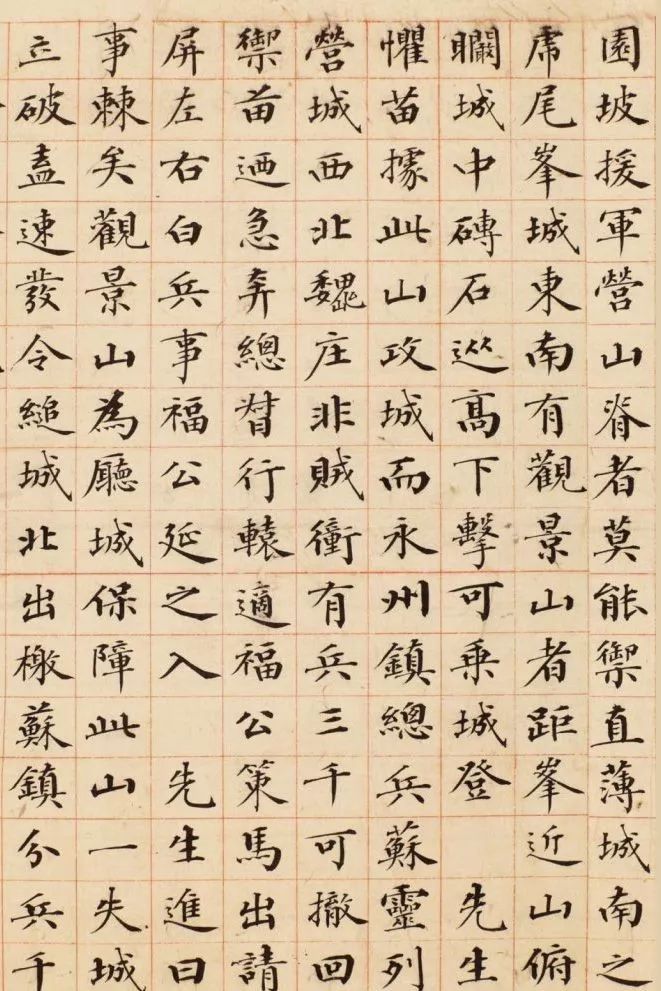 園坡援軍營山脊者莫能禦直薄城南之
虎尾峯城東南有觀景山者距峯近山俯
矙城中磚石從高下擊可乘城登 先生
懼苗據此山攻城而永州鎮總兵蘇靈列
營城西北魏庄非賊衝有兵三千可撤回
禦苗迺急奔總督行轅適福公策馬出請
屏左右白兵事福公延之入 先生進曰
事棘矣觀景山為廳城保障此山一失城
立破盍速發令縋城北出檄蘇鎮分兵千